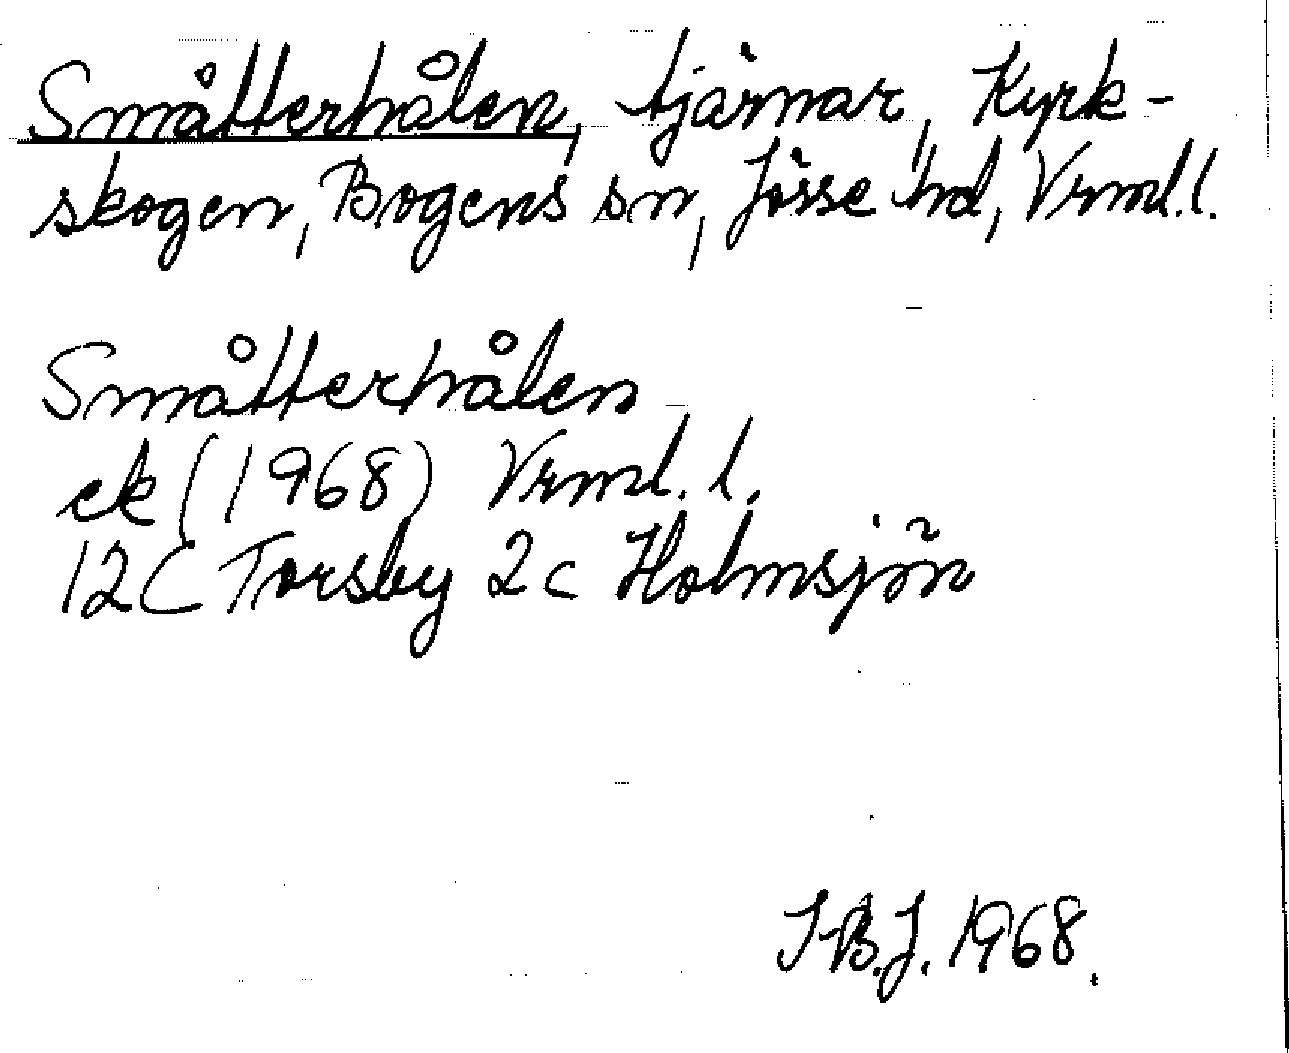 Småtterhålen, tjärnar, Kyrk-
skogen, Bogens sn, Jösse hd, Vrml.l.
Småtterhålen
ek (1968) Vrml. l.
12C Torsby 2c Holmsjön
I.B.J. 1968.